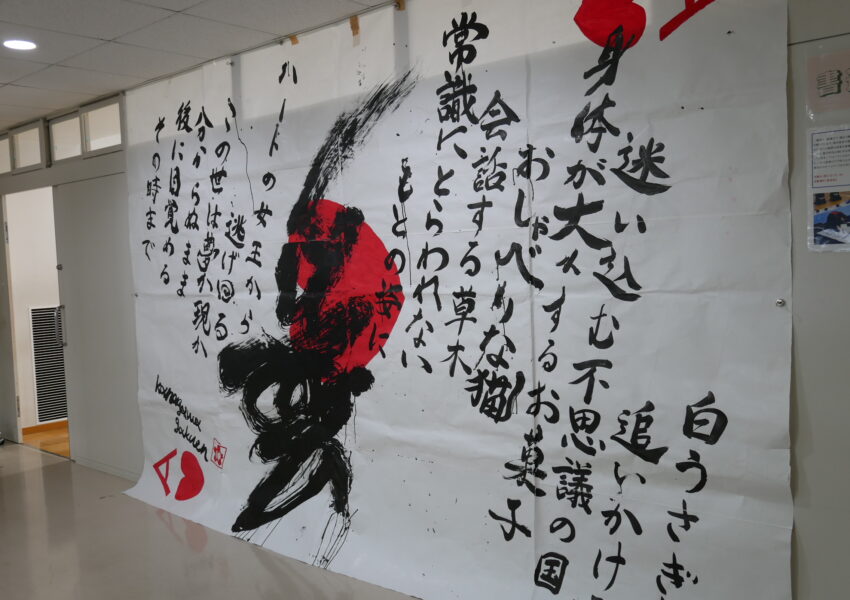 白うさぎ
追いかけ
迷い込む不思議の国
身体が大小するお菓子
おしゃべりな猫
会話する草木
常識にとらわれない
もとの姿に
夢
ハートの女王から
逃げ回る
この世は夢か現か
分からぬまま
後に目覚める
その時まで
A
書